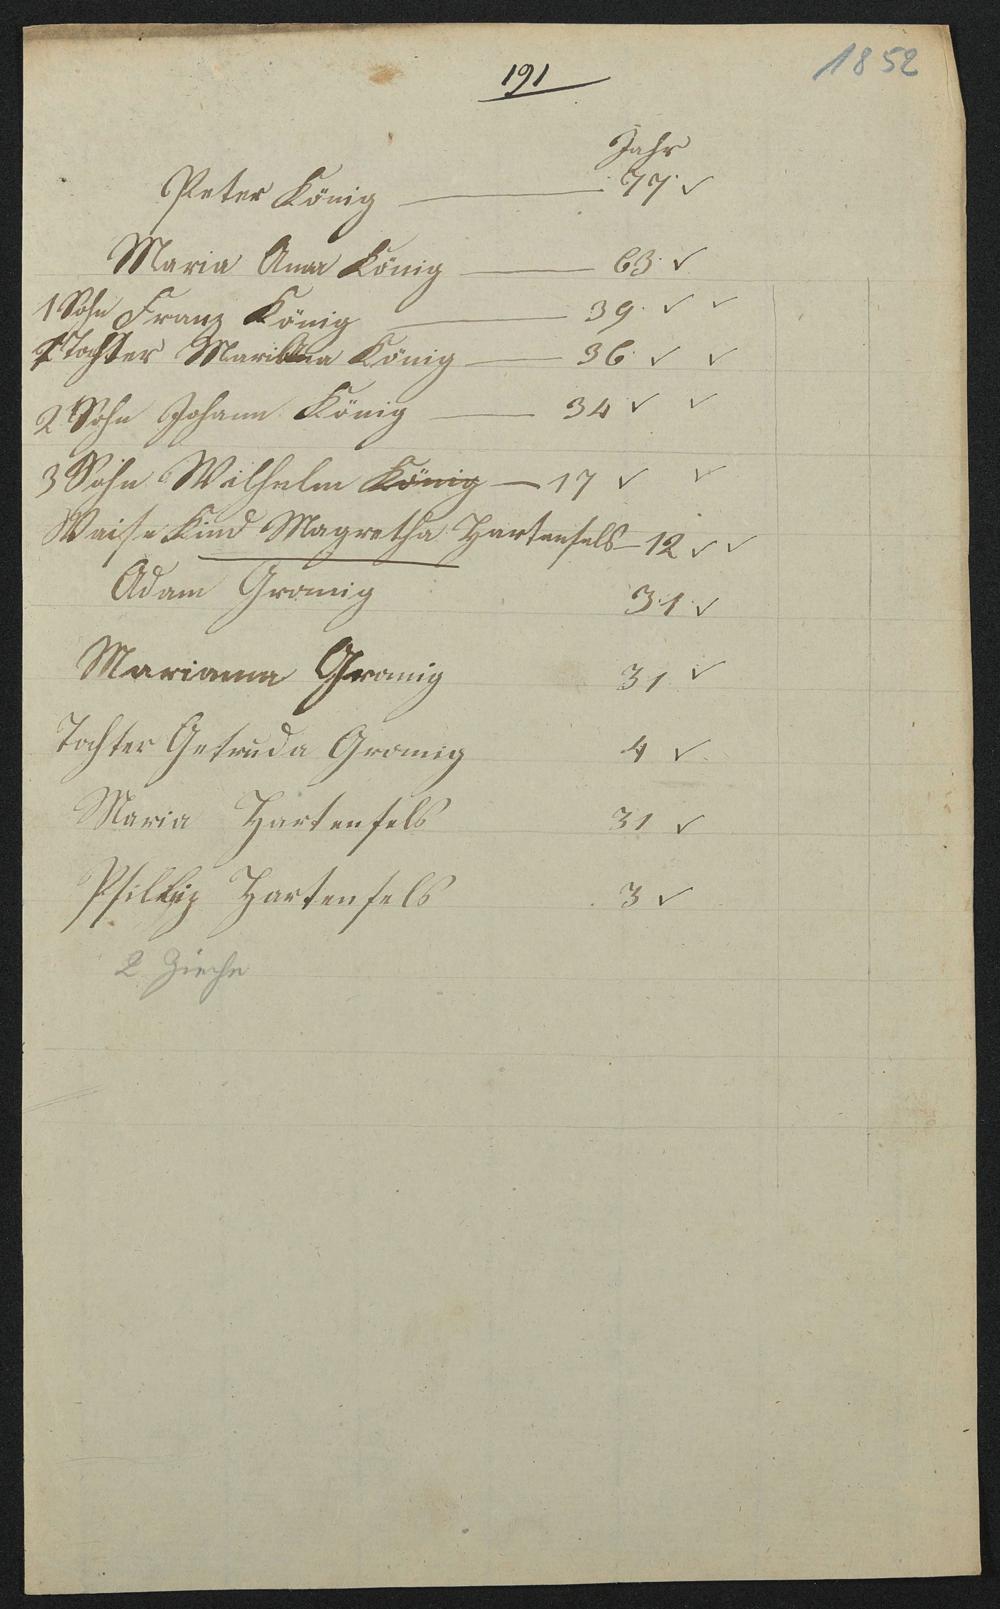 1852
191
Jahr
Peter König 77 ✓
Maria Anna König 63 ✓
1 Sohn Franz König 39 ✓ ✓
1 Tochter Mariana König 36 ✓ ✓
2 Sohn Johann König 34 ✓ ✓
3 Sohn Wilhelm König 17 ✓ ✓
Waise Kind Magretha Hartenfels 12 ✓ ✓
Adam Gromig 31 ✓
Marianna Gromig 31 ✓
Tochter Getruda Gromig 4 ✓
Maria Hartenfels 31 ✓
Phillip Hartenfels 3 ✓
2